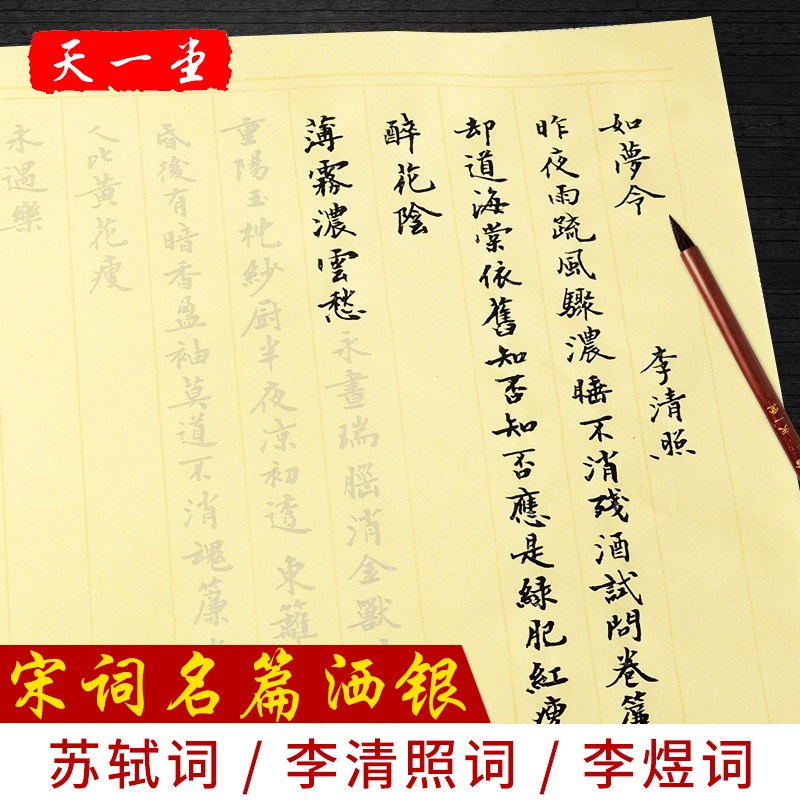 天一堂
如夢令
李清照
昨夜雨疏風驟濃睡不消殘酒試問卷簾
却道海棠依舊知否知否應是綠肥紅瘦
醉花陰
薄霧濃雲愁永晝瑞腦消金獸
重陽玉枕紗厨半夜凉初透東籬
昏後有暗香盈袖莫道不消魂簾
人比黃花瘦
永遇樂
宋词名篇洒银
苏轼词 / 李清照词 / 李煜词